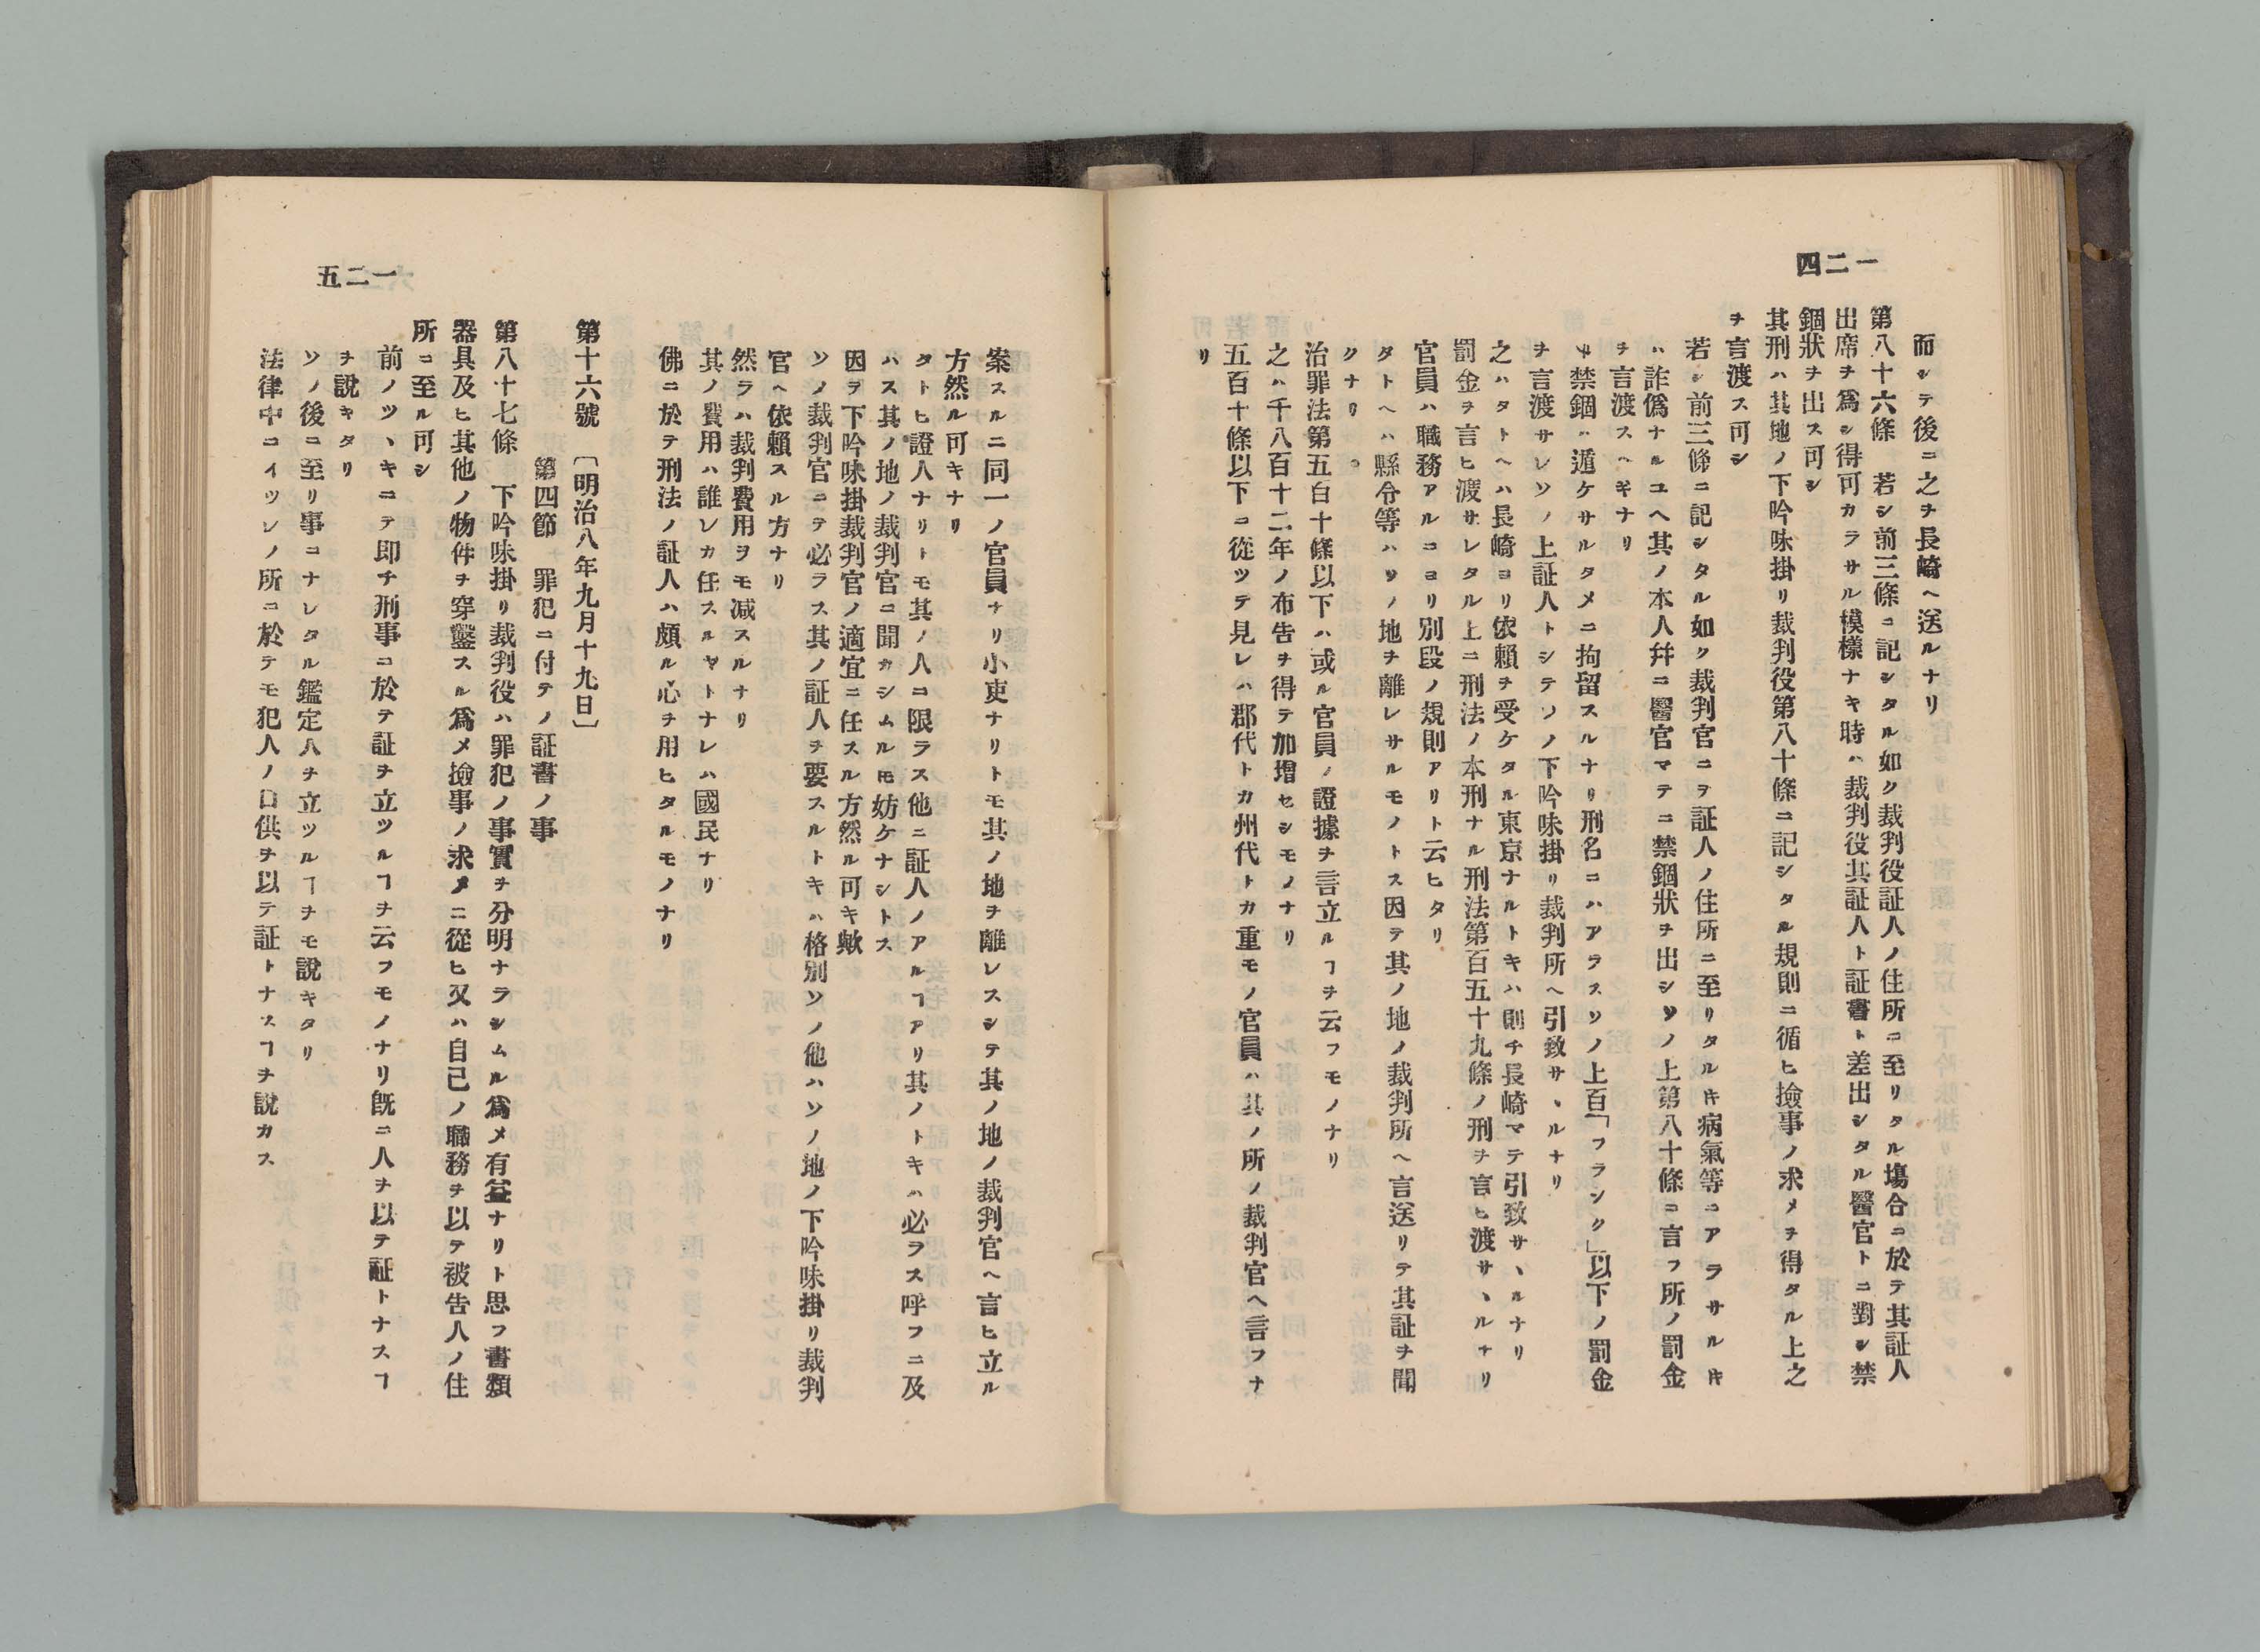 一二四
而シテ後ニ之ヲ長崎ヘ送ルナリ
第八十六條　若シ前三條ニ記シタル如ク裁判役証人ノ住所ニ至リタル塲合ニ於テ其証人
出席ヲ爲シ得可カラサル模樣ナキ時ハ裁判役其証人ト証書ト差出シタル醫官トニ對シ禁
錮狀ヲ出ス可シ
其刑ハ其地ノ下吟味掛リ裁判役第八十條ニ記シタル規則ニ循ヒ撿事ノ求メヲ得タル上之
ヲ言渡ス可シ
若シ前三條ニ記シタル如ク裁判官ニヲ証人ノ住所ニ至リタルキ病氣等ニアラサルキ
ハ詐僞ナルユヘ其ノ本人幷ニ醫官マテニ禁錮狀ヲ出シソノ上第八十條ニ言フ所ノ罰金
ヲ言渡スヘキナリ
禁錮ハ遁ケサルタメニ拘留スルナリ刑名ニハアラスソノ上百「フランク」以下ノ罰金
ヲ言渡サレソノ上証人トシテソノ下吟味掛リ裁判所ヘ引致サヽルナリ
之ハタトヘハ長崎ヨリ依賴ヲ受ケタル東京ナルトキハ則チ長崎マテ引致サヽルナリ
罰金ヲ言ヒ渡サレタル上ニ刑法ノ本刑ナル刑法第百五十九條ノ刑ヲ言ヒ渡サヽルナリ
官員ハ職務アルニヨリ別段ノ規則アリト云ヒタリ
タトヘハ縣令等ハソノ地ヲ離レサルモノトス因テ其ノ地ノ裁判所ヘ言送リテ其証ヲ聞
クナリ。
治罪法第五百十條以下ハ或ル官員ノ證據ヲ言立ルヿヲ云フモノナリ
之ハ千八百十二年ノ布告ヲ得テ加增セシモノナリ
五百十條以下ニ從ツテ見レハ郡代トカ州代トカ重モノ官員ハ其ノ所ノ裁判官ヘ言フナ
リ
一二五
案スルニ同一ノ官員ナリ小吏ナリトモ其ノ地ヲ離レスシテ其ノ地ノ裁判官ヘ言ヒ立ル
方然ル可キナリ
タトヒ證人ナリトモ其ノ人ニ限ラス他ニ証人ノアルヿアリ其ノトキハ必ラス呼フニ及
ハス其ノ地ノ裁判官ニ聞カシムルモ妨ケナシトス
因ヲ下吟味掛裁判官ノ適宜ニ任スル方然ル可キ歟
ソノ裁判官ニテ必ラス其ノ証人ヲ要スルトキハ格別ソノ他ハソノ地ノ下吟味掛リ裁判
官ヘ依賴スル方ナリ
然ラハ裁判費用ヲモ减スルナリ
其ノ費用ハ誰レカ任スルヤトナレハ國民ナリ
佛ニ於テ刑法ノ証人ハ頗ル心ヲ用ヒタルモノナリ
第十六號　〔明治八年九月十九日〕
第四節　罪犯ニ付テノ証書ノ事
第八十七條　下吟味掛リ裁判役ハ罪犯ノ事實ヲ分明ナラシムル爲メ有益ナリト思フ書類
器具及ヒ其他ノ物件ヲ穿鑿スル爲メ撿事ノ求メニ從ヒ又ハ自己ノ職務ヲ以テ被告人ノ住
所ニ至ル可シ
前ノツヽキニテ即チ刑事ニ於テ証ヲ立ツルヿヲ云フモノナリ旣ニ人ヲ以テ証トナスヿ
ヲ說キタリ
ソノ後ニ至リ事ニナレタル鑑定人ヲ立ツルヿヲモ說キタリ
法律中ニイツレノ所ニ於テモ犯人ノ口供ヲ以テ証トナスヿヲ說カス